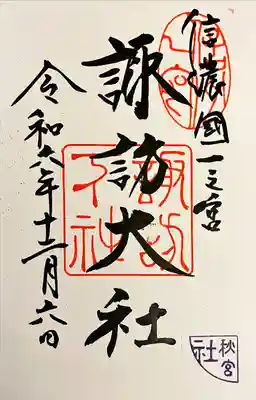 信濃國一之宮
諏訪大社
令和六年十二月六日
諏訪大社
秋宮
社